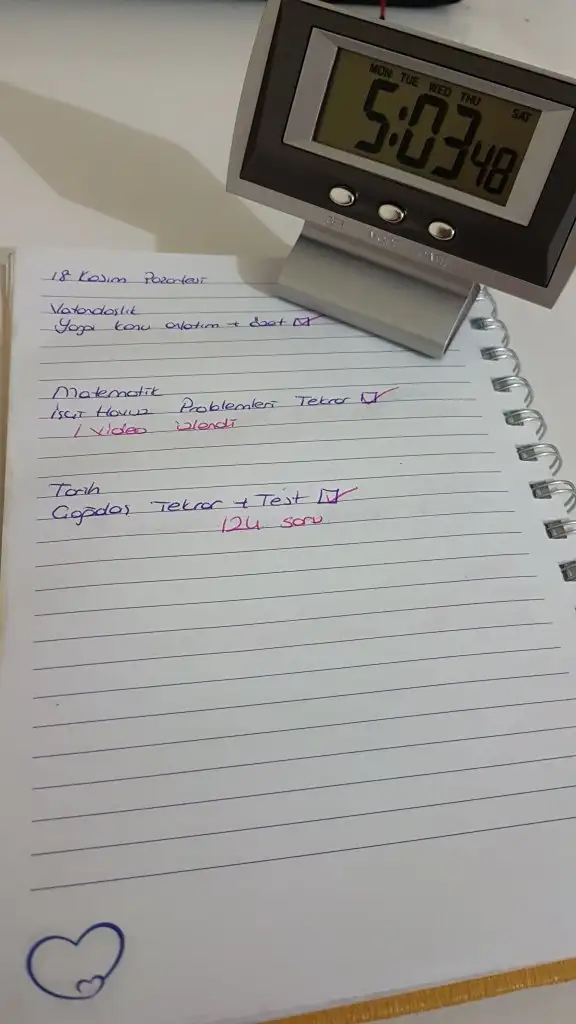 MON TUE WED THU SAT
5:03 48
18 Kasım Pazartesi
Vatandaşlık
Yargı konu anlatım +
Matematik
İşçi Havuz Problemleri Tekrar
1 video izlendi
Tarih
Çağdaş Tekrar + Test
124 soru